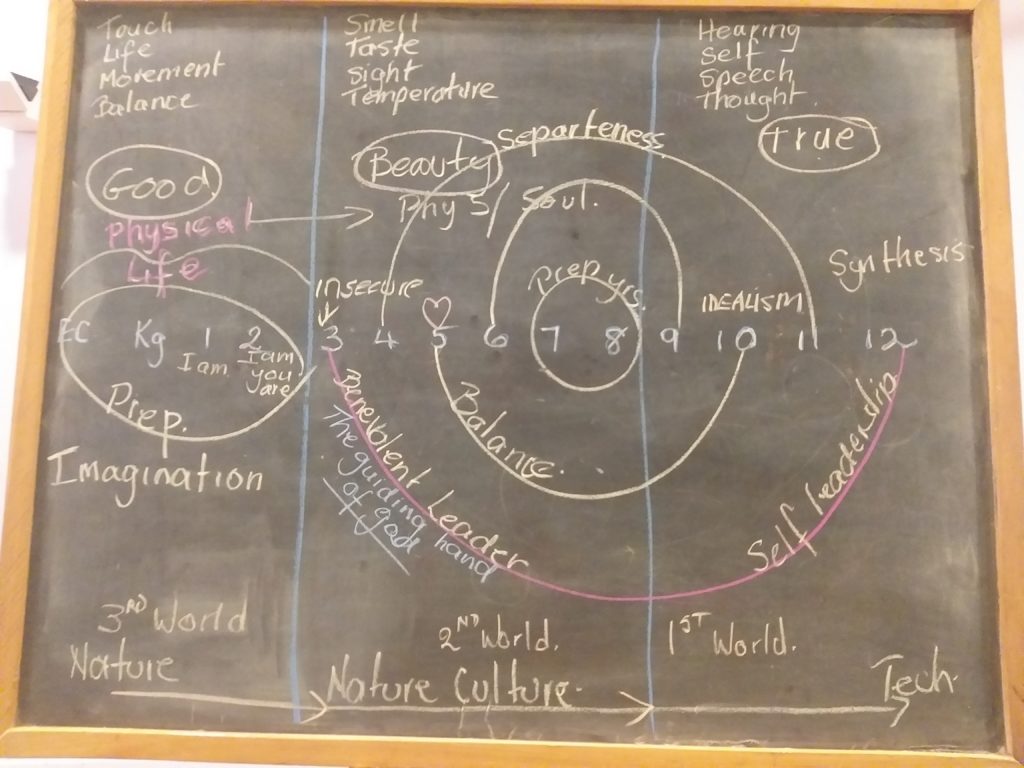 Touch
Life
Movement
Balance
Smell
Taste
Sight
Temperature
Hearing
Self
Speech
Thought.
Good
Physical
Life
Beauty
Separteness
True
Phys/ Soul.
Prep yrs.
Insecure
IDEALISM
Synthesis
EC Kg 1 2 3 4 5 6 7 8 9 10 11 12
I am
I am
you
are
Prep.
Imagination
Benevolent Leader
The guiding hand
of god
Balance.
Self leadership
3RD World
2ND World.
1ST World.
Nature
Nature Culture.
Tech.